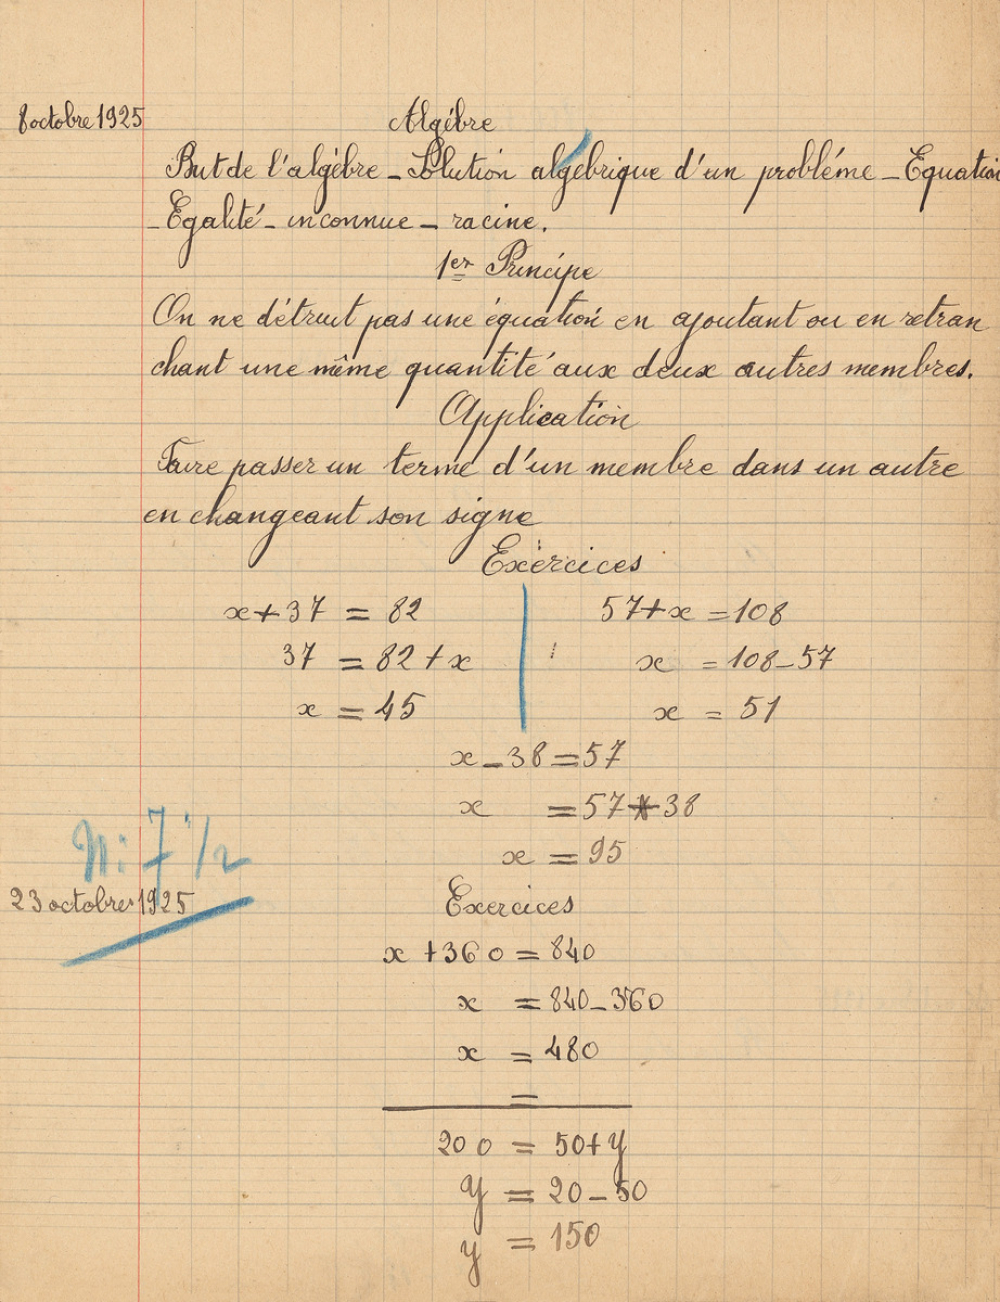 8 octobre 1925
Algèbre
But de l'algèbre - Solution algébrique d'un probléme - Equation
- Egalité - inconnue - racine.
1er Principe
On ne détruit pas une équation en ajoutant ou en retran
chant une même quantité aux deux autres membres.
Application
Faire passer un terme d'un membre dans un autre
en changeant son signe
Exércices
x + 37 = 82
37 = 82 + x
x = 45
57 + x = 108
x = 108 - 57
x = 51
x - 38 = 57
x = 57 + 38
x = 95
N: 7 1/2
23 octobre 1925
Exercices
x + 360 = 840
x = 840 - 360
x = 480
=
200 = 50 + y
y = 20 - 50
y = 150